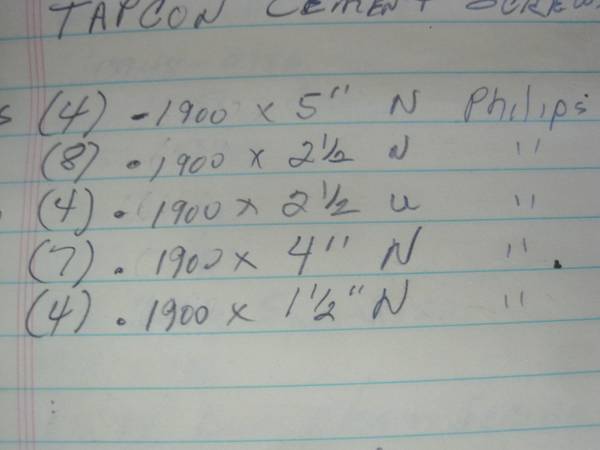 TAPCON CEMENT SCREW
s (4) .1900 x 5" N Philips
(8) .1900 x 2 1/2 N "
(4) .1900 x 2 1/2 u "
(7) .1900 x 4" N "
(4) .1900 x 1 1/2" N "